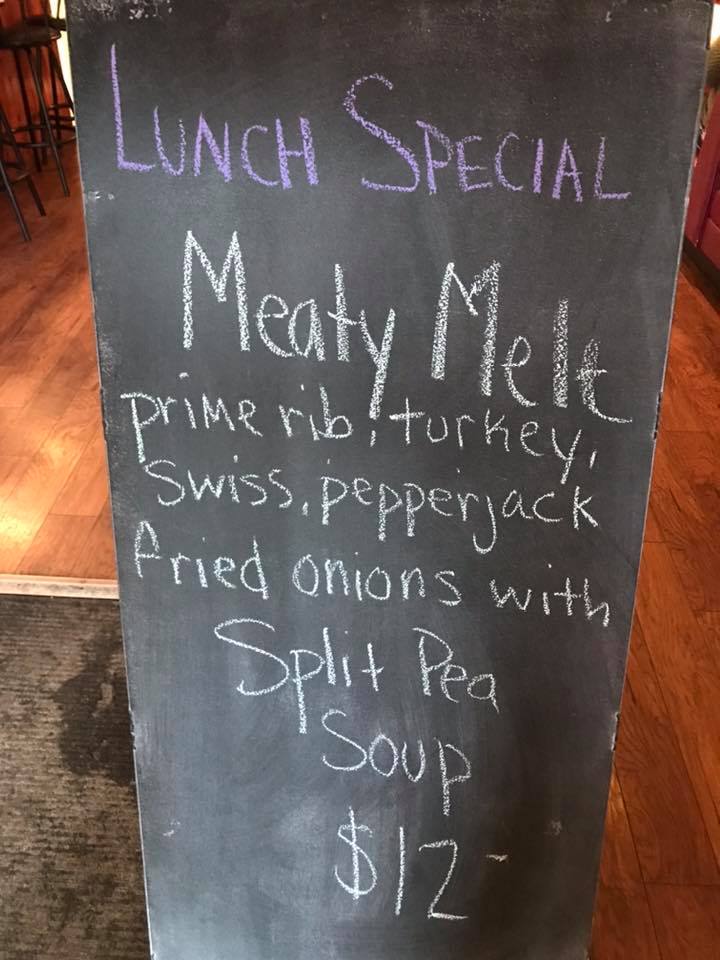 LUNCH SPECIAL
Meaty Melt
prime rib, turkey,
Swiss, pepperjack
fried onions with
Split Pea
Soup
$12-